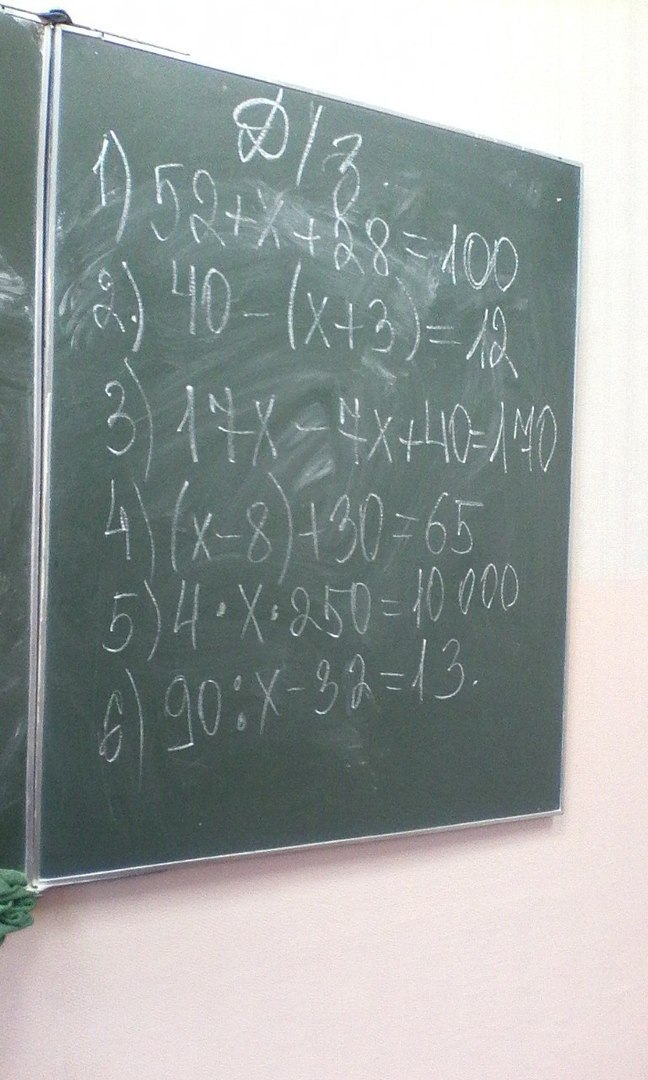 Д/з
1) 52+x+28=100
2.) 40-(x+3)=12
3) 17x-7x+40=170
4) (x-8)+30=65
5) 4·x·250=10 000
6) 90:x-32=13.